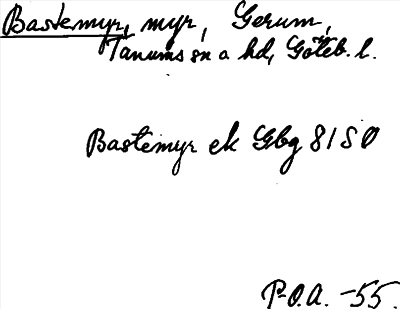 Bastemyr, myr, Gerum,
Tanums sn o hd, Göteb. l.
Bastemyr ek Gbg 81 SO
P-O.A. -55.